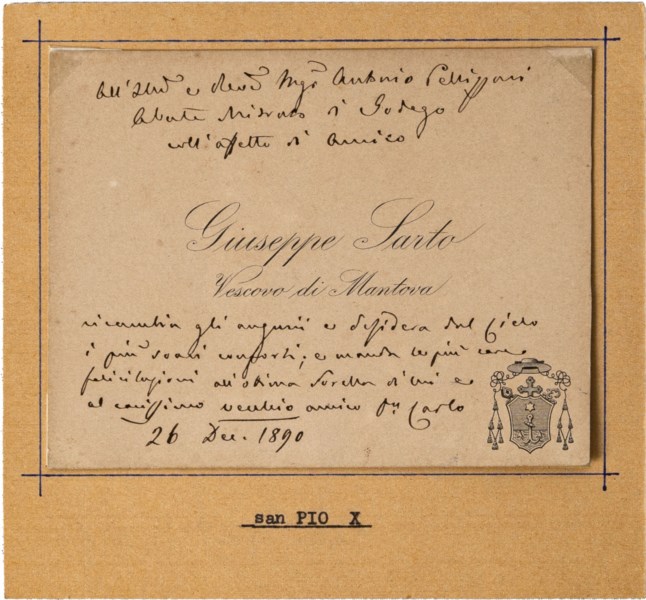 All'Ill.mo e Rev.mo Mgr Antonio Pellizzari
Abate Mitrato di Godego
coll'affetto di amico
Giuseppe Sarto
Vescovo di Mantova
ricambia gli augurii e desidera dal Cielo
i più soavi conforti; e manda le più care
felicitazioni all'ottima Sorella di lui e
al carissimo vecchio amico Dn Carlo
26 Dec. 1890
san PIO X